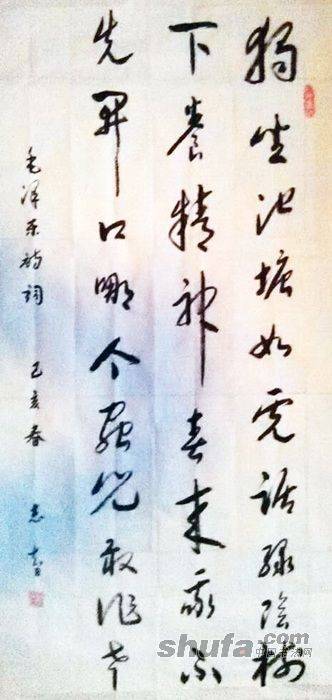 獨坐池塘如虎踞绿陰樹
下養精神春来我不
先開口哪个蟲兒敢作声
毛泽东诗词 己亥春 志
shufa.com
中国书法网